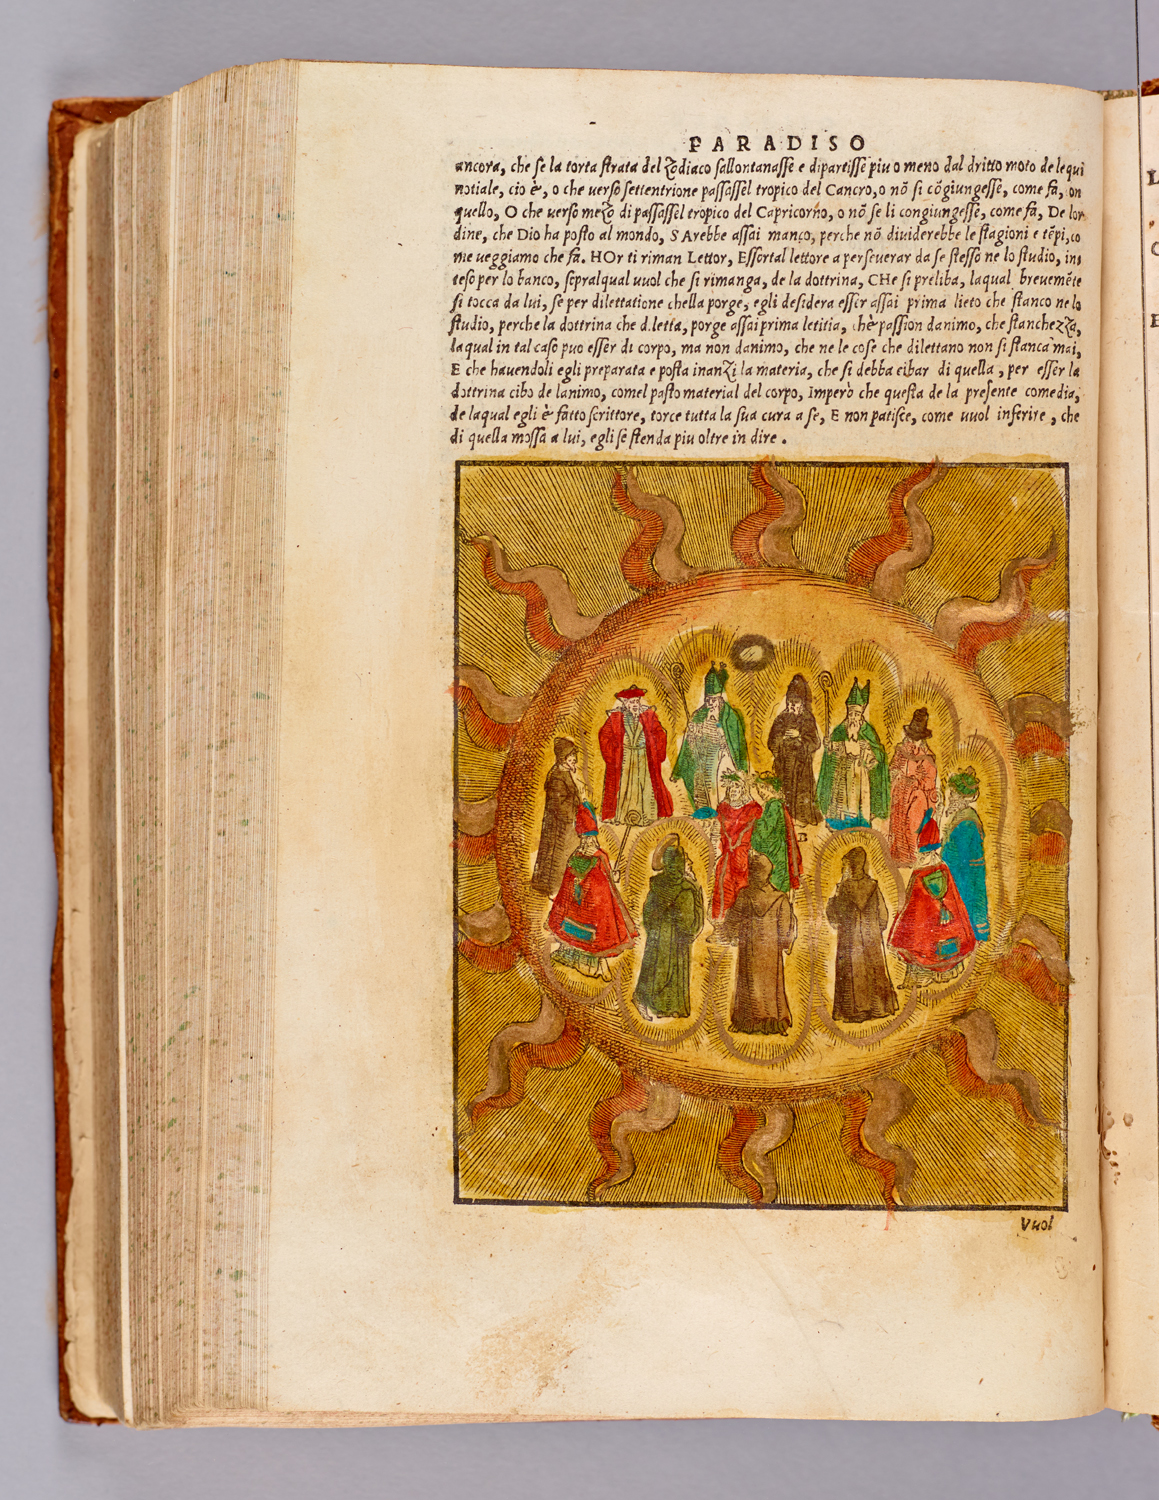 PARADISO
ancora, che se la torta strata del zodiaco sallontanasse e dipartisse piu o meno dal dritto moto de lequi
notiale, cio è, o che verso settentrione passassel tropico del Cancro, o nõ si cõgiungesse, come fa, on
quello, O che verso mezo di passassel tropico del Capricorno, o nõ se li congiungesse, come fa, De lor
dine, che Dio ha posto al mondo, SArebbe assai manco, perche nõ dividerebbe le stagioni e tẽpi, co
me veggiamo che fa. HOr ti riman Lettor, Essortal lettore a perseverar da se stesso ne lo studio, in
teso per lo banco, sepralqual vuol che si rimanga, de la dottrina, CHe si preliba, laqual brevemẽte
si tocca da lui, se per dilettatione chella porge, egli desidera esser assai prima lieto che stanco ne lo
studio, perche la dottrina che d.letta, porge assai prima letitia, chè passion danimo, che stanchezza,
laqual in tal caso puo esser di corpo, ma non danimo, che ne le cose che dilettano non si stanca mai,
E che havendoli egli preparata e posta inanzi la materia, che si debba cibar di quella, per esser la
dottrina cibo de lanimo, comel pasto material del corpo, Imperò che questa de la presente comedia,
de laqual egli è fatto scrittore, torce tutta la sua cura a se, E non patisce, come vuol inferire, che
di quella mossa a lui, egli se stenda piu oltre in dire.
B
Vuol